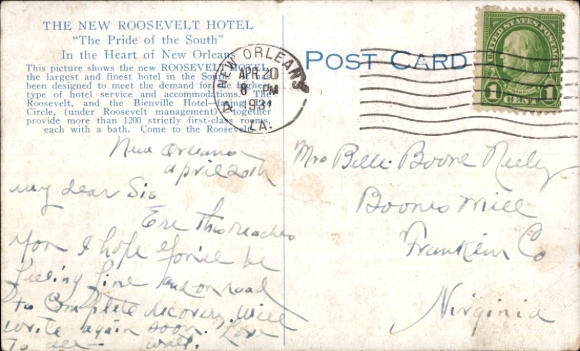 THE NEW ROOSEVELT HOTEL
"The Pride of the South"
In the Heart of New Orleans
This picture shows the new ROOSEVELT HOTEL,
the largest and finest hotel in the South
been designed to meet the demand for the highest
type of hotel service and accommodations. The
Roosevelt, and the Bienville Hotel—facing Lee
Circle, (under Roosevelt management) together
provide more than 1200 strictly first-class rooms,
each with a bath. Come to the Roosevelt.
NEW ORLEANS
APR 20
8 PM
1931
LA.
POST CARD
UNITED STATES POSTAGE
1 CENT 1
New Orleans
April 20th
My dear Sis
Ere this reaches
you I hope you'll be
feeling fine and on road
to complete recovery. Will
write again soon. Love
to all— Walt.
Mrs Belle Boone Neely
Boones Mill
Franklin Co
Virginia